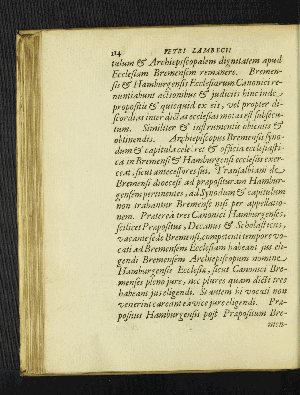 114 PETRI LAMBECII
tulum & Archiepiscopalem dignitatem apud
Ecclesiam Bremensem remanere. Bremen-
sis & Hamburgensis Ecclesiarum Canonici re-
nuntiabunt actionibus & judiciis hinc inde
propositis & quicquid ex eis, vel propter di-
scordias inter dictas ecclesias motas est subsecu-
tum. Similiter & instrumentis obtentis &
obtinendis. Archiepiscopus Bremensis syno-
dum & capitula celebret & officia ecclesiasti-
ca in Bremensi & Hamburgensi ecclesiis exer-
ceat, sicut antecessores sui. Transalbiam de
Bremensi dioecesi ad praposituram Hambur-
gensem pertinentes, ad Synodum & capitulum
non trahantur Bremense nisi per appellatio-
nem. Praterea tres Canonici Hamburgenses,
scilicet Prapositus, Decanus & Scholasticus,
vacante sede Bremensi, competenti tempore vo-
cati ad Bremensem Ecclesiam habeant jus eli-
gendi Bremensem Archiepiscopum nomine
Hamburgensis Ecclesia, sicut Canonici Bre-
menses pleno jure, nec plures quam dicti tres
habeant jus eligendi. Si autem hi vocati non
venerint careant ea vice jure eligendi. Pra-
positus Hamburgensis post Prapositum Bre-
men-